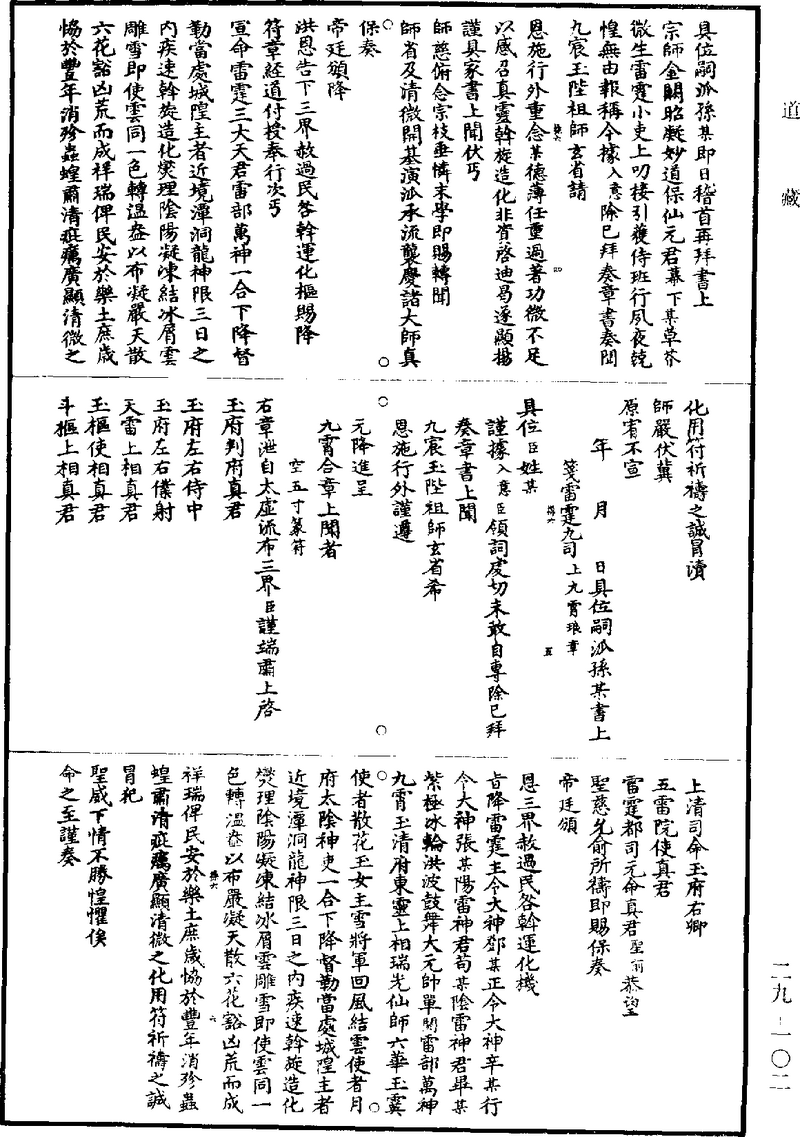 道藏
具位嗣派孫某即日稽首再拜書上
宗師金闕昭凝妙道保仙元君幕下某草芥
微生雷霆小吏上叨接引獲侍班行夙夜兢
惶無由報稱今據入意除已拜奏章書奏聞
九宸玉陛祖師玄省請
恩施行外重念某德薄任重過著功微不足
以感召真靈斡旋造化非資啓迪曷遂顯揚
謹具家書上聞伏丐
師慈俯念宗枝垂憐末學即賜轉聞
師省及清微開基演派承流襲慶諸大師真
保奏
帝廷頒降
洪恩告下三界赦過民咎斡運化樞賜降
符章經道付授奉行次丐
宣命雷霆三大天君雷部萬神一合下降督
勒當處城隍主者近境潭洞龍神限三日之
内疾速斡旋造化燮理陰陽凝凍結冰屑雲
雕雪即使雲同一色轉溫燠以布凝嚴天散
六花豁凶荒而成祥瑞俾民安於樂土庶歲
恊於豐年消殄蟲蝗肅清疵癘廣顯清微之
化用符祈禱之誠冒瀆
師嚴伏冀
原宥不宣
年 月 日具位嗣派孫某書上
箋雷霆九司上九霄琅章
具位臣姓某
謹據入意臣領詞虔切未敢自專除已拜
奏章書上聞
九宸玉陛祖師玄省希
恩施行外謹遵
元降進呈
九霄合章上聞者
空五寸篆符
右章泄自太虛流布三界臣謹端肅上啓
玉府判府真君
玉府左右侍中
玉府左右僕射
天雷上相真君
玉樞使相真君
斗樞上相真君
上清司命玉府右卿
五雷院使真君
雷霆都司元命真君聖前恭望
聖慈允俞所禱即賜保奏
帝廷頒
恩三界赦過民咎斡運化機
旨降雷霆主令大神鄧某正令大神辛某行
令大神張某陽雷神君苟某陰雷神君畢某
紫極冰輪洪波鼓舞大元帥單某雷部萬神
九霄玉清府東靈上相瑞光仙師六華玉冥
使者散花玉女主雪將軍回風結雲使者月
府太陰神吏一合下降督勒當處城隍主者
近境潭洞龍神限三日之内疾速斡旋造化
燮理陰陽凝凍結冰屑雲雕雪即使雲同一
色轉溫燠以布嚴凝天散六花豁凶荒而成
祥瑞俾民安於樂土庶歲恊於豐年消殄蟲
蝗肅清疵癘廣顯清微之化用符祈禱之誠
冒犯
聖威下情不勝惶懼俟
命之至謹奏
二九—一〇二